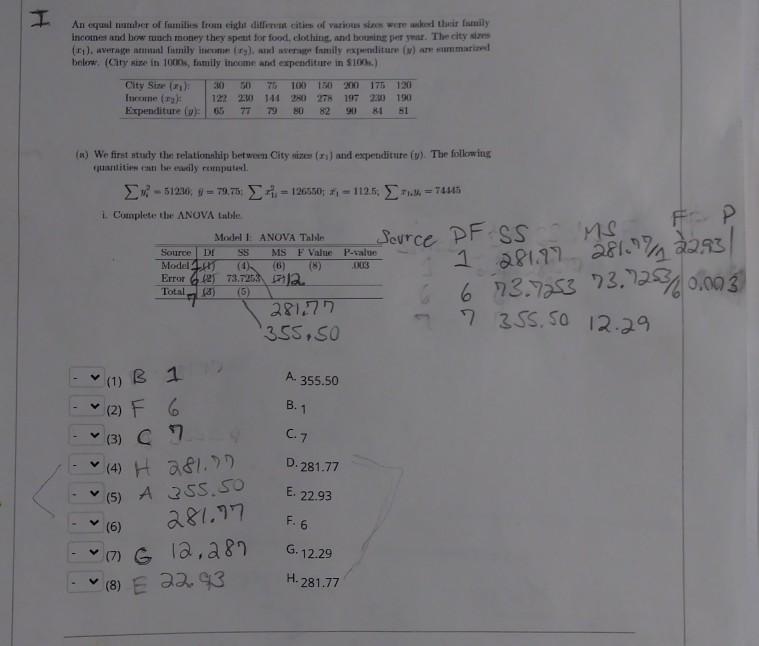 I
An equal number of families from eight different cities of various sizes were asked their family
incomes and how much money they spent for food, clothing, and housing per year. The city sizes
(x₁), average annual family income (x₂), and average family expenditure (y) are summarized
below. (City size in 1000s, family income and expenditure in $100s.)
City Size (x₁): 30 50 75 100 150 200 175 120
Income (x₂): 122 230 144 280 278 197 230 190
Expenditure (y): 65 77 79 80 82 90 84 81
(a) We first study the relationship between City sizes (x₁) and expenditure (y). The following
quantities can be easily computed.
∑ yᵢ² = 51236; ȳ = 79.75; ∑ x₁ᵢ² = 126550; x̄₁ = 112.5, ∑ x₁ᵢyᵢ = 74445
i. Complete the ANOVA table.
Model I: ANOVA Table
Source Df SS MS F Value P-value
Model 1 (1) (4) (6) (8) .003
Error 6 (2) 73.7253 (7) 12
Total 7 (3) (5)
281.77
355.50
Source DF SS MS F P
1 281.77 281.77/1 22.93
6 73.7253 73.7253/6 0.003
7 355.50 12.29
- (1) B 1 A. 355.50
- (2) F 6 B. 1
- (3) C 7 C. 7
- (4) H 281.77 D. 281.77
- (5) A 355.50 E. 22.93
- (6) 281.77 F. 6
- (7) G 12.287 G. 12.29
- (8) E 22.93 H. 281.77